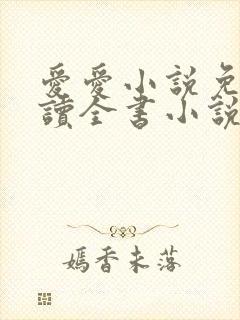 愛愛小說免
讀全書小說
嫣香未落